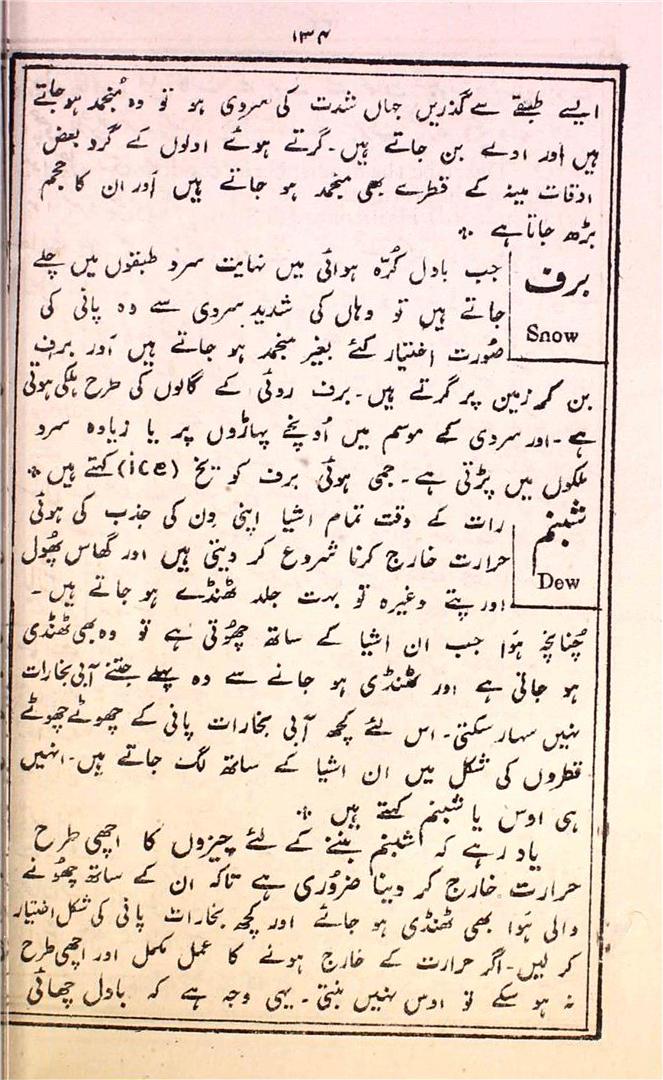 ۱۳۴
ایسے طبقے سے گذریں جہاں شدت کی سردی ہو تو وہ مُنجمد ہو جاتے
ہیں اَور اولے بن جاتے ہیں۔ گرتے ہوئے اولوں کے گرد بعض
اوقات مینہ کے قطرے بھی منجمد ہو جاتے ہیں اَور ان کا حجم
بڑھ جاتا ہے ٭
برف
Snow
جب بادل کُرّہ ہوائی میں نہایت سرد طبقوں میں چلے
جاتے ہیں تو وہاں کی شدید سردی سے وہ پانی کی
صُورت اختیار کئے بغیر منجمد ہو جاتے ہیں اَور برف
بن کر زمین پر گرتے ہیں۔ برف روئی کے گالوں کی طرح ہلکی ہوتی
ہے۔ اور سردی کے موسم میں اُونچے پہاڑوں پر یا زیادہ سرد
ملکوں میں پڑتی ہے۔ جمی ہوئی برف کو یخ (ice) کہتے ہیں ٭
شبنم
Dew
رات کے وقت تمام اشیا اپنی دِن کی جذب کی ہوئی
حرارت خارج کرنا شروع کر دیتی ہیں اور گھاس پھُول
اور پتے وغیرہ تو بہت جلد ٹھنڈے ہو جاتے ہیں۔
چُنانچہ ہَوا جب ان اشیا کے ساتھ چھُوتی ہے تو وہ بھی ٹھنڈی
ہو جاتی ہے اور ٹھنڈی ہو جانے سے وہ پہلے جتنے آبی بخارات
نہیں سہار سکتی۔ اس لئے کچھ آبی بخارات پانی کے چھوٹے چھوٹے
قطروں کی شکل میں ان اشیا کے ساتھ لگ جاتے ہیں۔ انہیں
ہی اوس یا شبنم کہتے ہیں ٭
یاد رہے کہ شبنم بننے کے لئے چیزوں کا اچھی طرح
حرارت خارج کر دینا ضرُوری ہے تاکہ ان کے ساتھ چھُونے
والی ہَوا بھی ٹھنڈی ہو جائے اور کچھ بخارات پانی کی شکل اختیار
کر لیں۔ اگر حرارت کے خارج ہونے کا عمل مکمل اور اچھی طرح
نہ ہو سکے تو اوس نہیں بنتی۔ یہی وجہ ہے کہ بادل چھائی